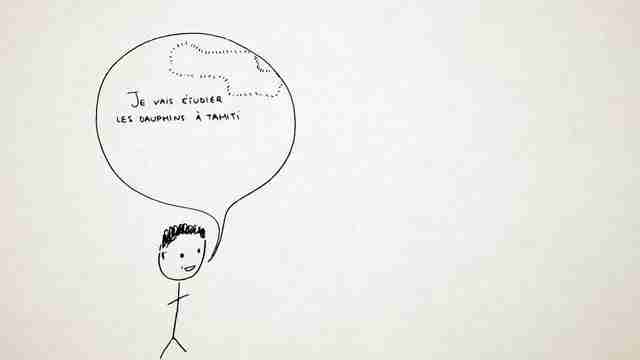 JE VAIS ÉTUDIER
LES DAUPHINS À TAHITI